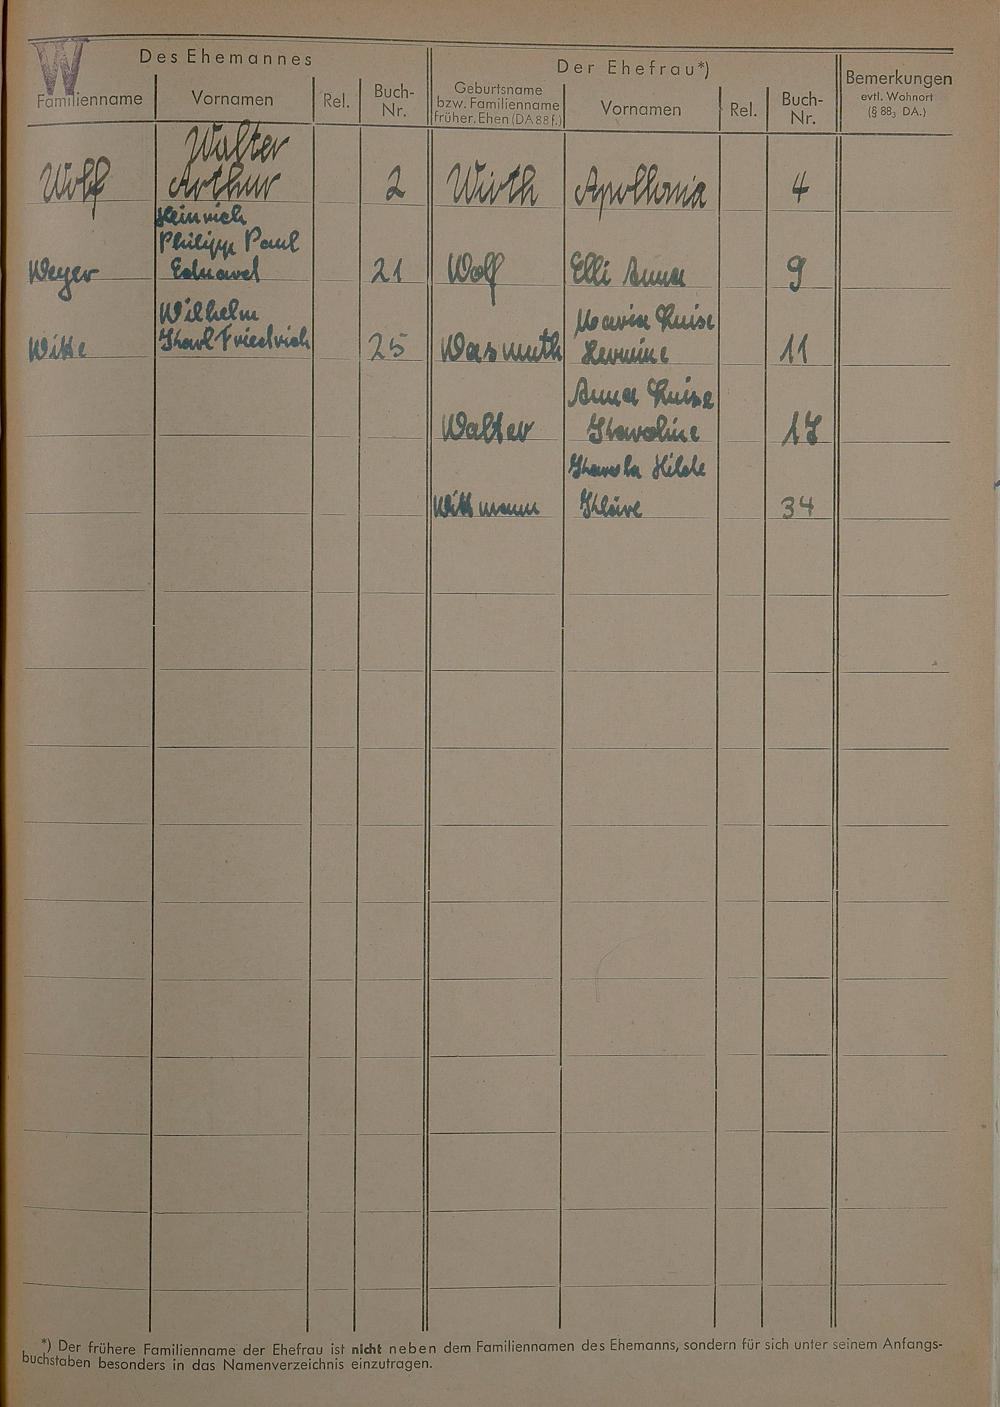 W
Des Ehemannes
Der Ehefrau*)
Familienname
Vornamen
Rel.
Buch-
Nr.
Geburtsname
bzw. Familienname
früher. Ehen (DA 88 f.)
Vornamen
Rel.
Buch-
Nr.
Bemerkungen
evtl. Wohnort
(§ 88, DA.)
Walter
Wolf Arthur 2 Wirth Apollonia 4
Heinrich
Philipp Paul
Weyer Eduard 21 Wolf Elli Anna 9
Wilhelm Maria Luise
Witte Karl Friedrich 25 Wasmuth Hermine 11
Anna Luise
Walter Karoline 17
Karola Hilde
Wittmann Kläre 34
*) Der frühere Familienname der Ehefrau ist nicht neben dem Familiennamen des Ehemanns, sondern für sich unter seinem Anfangs-
buchstaben besonders in das Namenverzeichnis einzutragen.